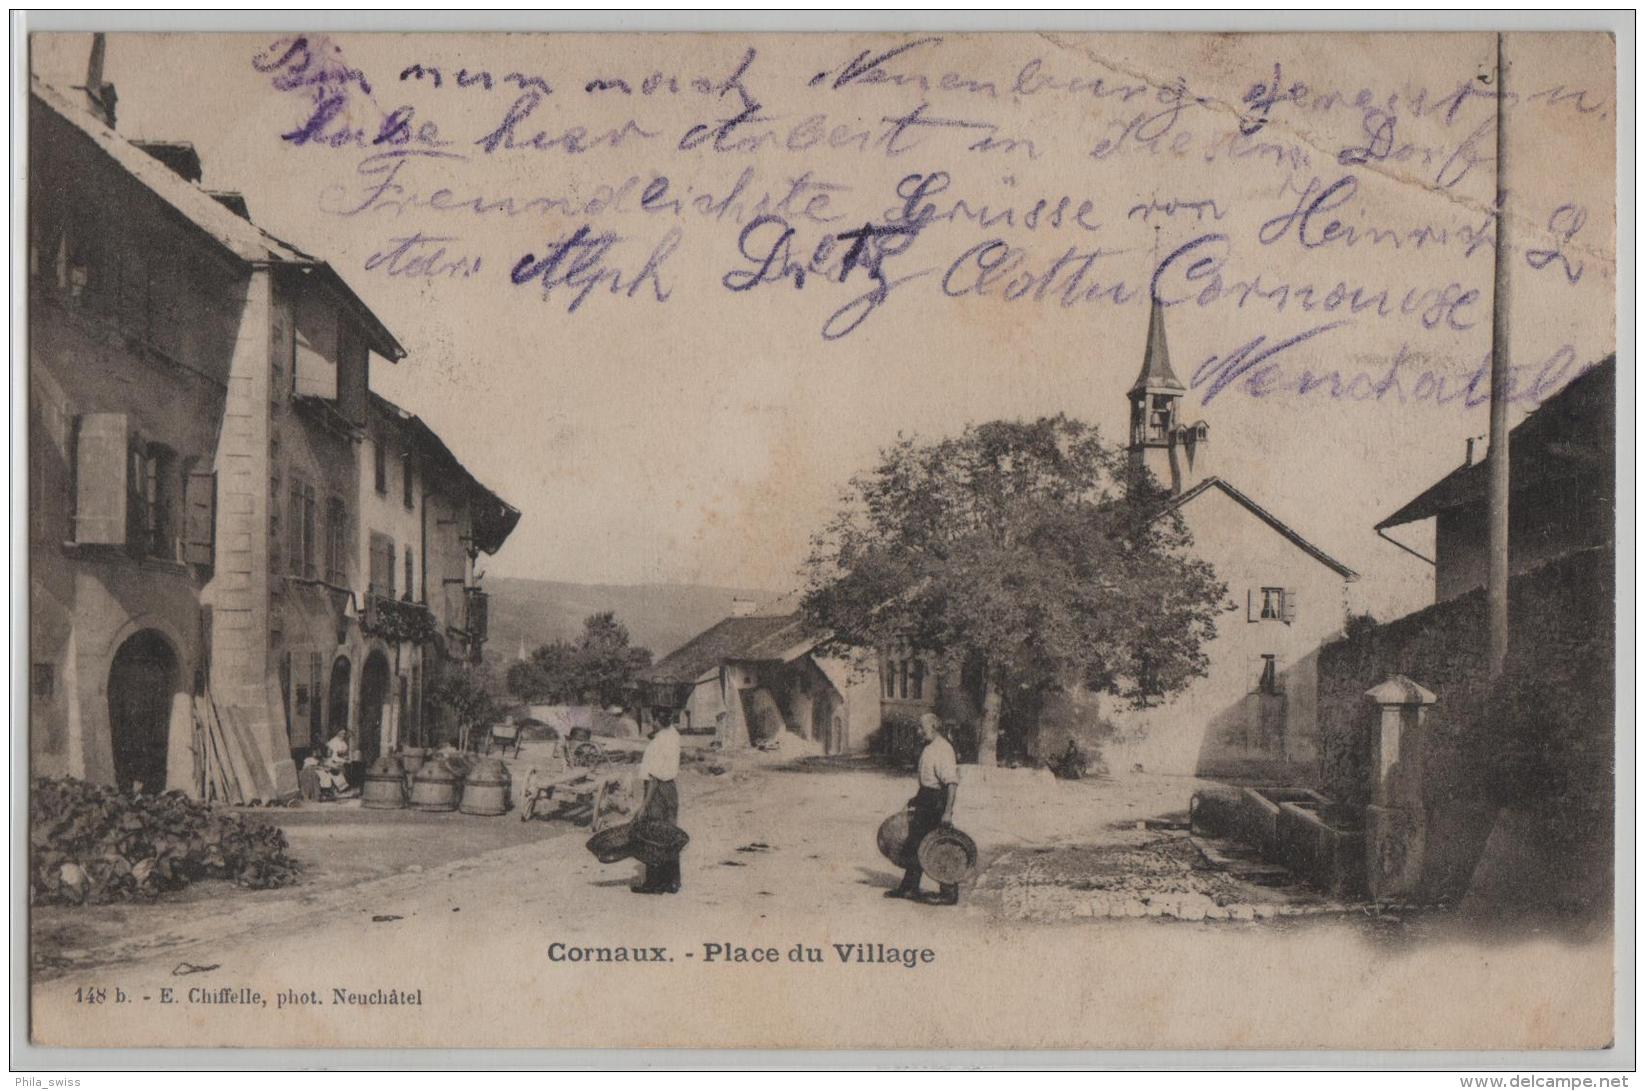 Bin nun nach Neuenburg gereist u.
habe hier Arbeit in diesem Dorf
Freundlichste Grüsse von Heinrich
Adr. Alph Clottu Cornaux
Neuchatel
Cornaux. - Place du Village
148 b. - E. Chiffelle, phot. Neuchâtel
Phila_swiss
delcampe.net